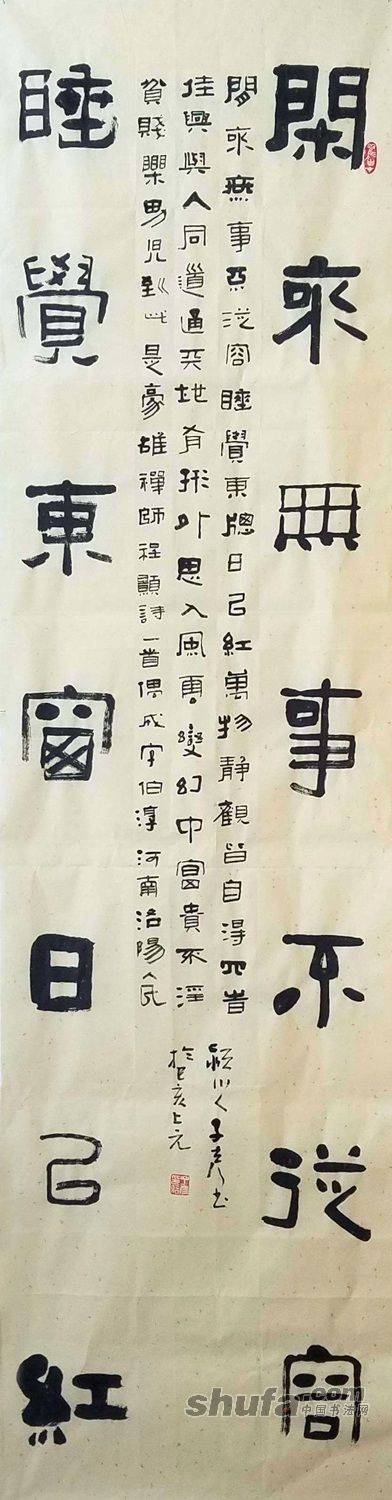 閑來無事不從容
閒來無事不從容睡覺東牕日已紅萬物靜觀皆自得四時
佳興與人同道通天地有形外思入風雲變幻中富貴不淫
貧賤樂男兒到此是豪雄禪師程顥詩一首偶成字伯淳河南洛陽人氏
川人子书
於己亥上元
睡覺東窗日已紅
shufa.com
中国书法网